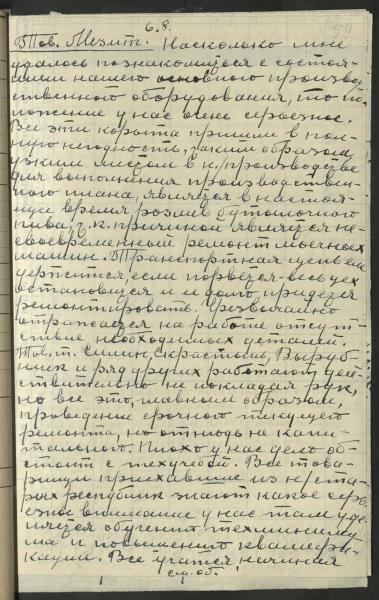 6.8.
59
Тов. Мезит. Насколько мне
удалось познакомиться с состоя-
нием нашего основного производ-
ственного оборудования, то по-
ложение у нас очень серьезное.
Все эти корыта пришли в пол-
ную негодность, таким образом
узким местом в н/производстве
для выполнения производствен-
ного плана, является в настоя-
щее время розлив бутылочного
пива, т.к. причиной является не-
своевременный ремонт моечных
машин. Транспортная цепь еле
держится, если порвется - весь цех
остановится и долго придется
ремонтировать. Чрезвычайно
отражается на работе отсут-
ствие необходимых деталей.
Тов. т. Силин, Скрастынь, Выруб-
ник и ряд других работают дей-
ствительно не покладая рук,
но все это, главным образом,
проведение срочного текущего
ремонта, но отнюдь не капи-
тального. Плохо у нас дело об-
стоит с техучебой. Все това-
рищи приехавшие из н/ста-
рых республик знают какое серь-
езное внимание у нас там уде-
ляется обучению техминиму-
ма и повышению квалифи-
кации. Все учатся, начиная
см. об.